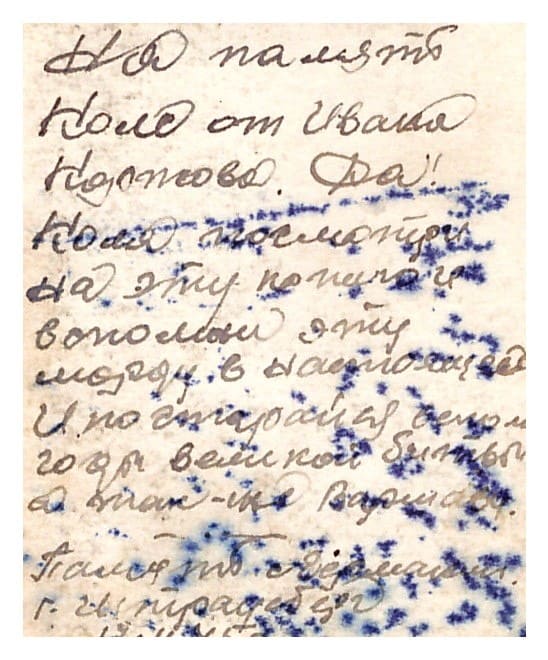 На память
Коле от Ивана
Да!
Коля посмотри
на эту копию и
вспомни эту
морду в настоящей
И постарайся вспом
годы великой битвы
а так-же Варшаву.
Память Германии.
г.